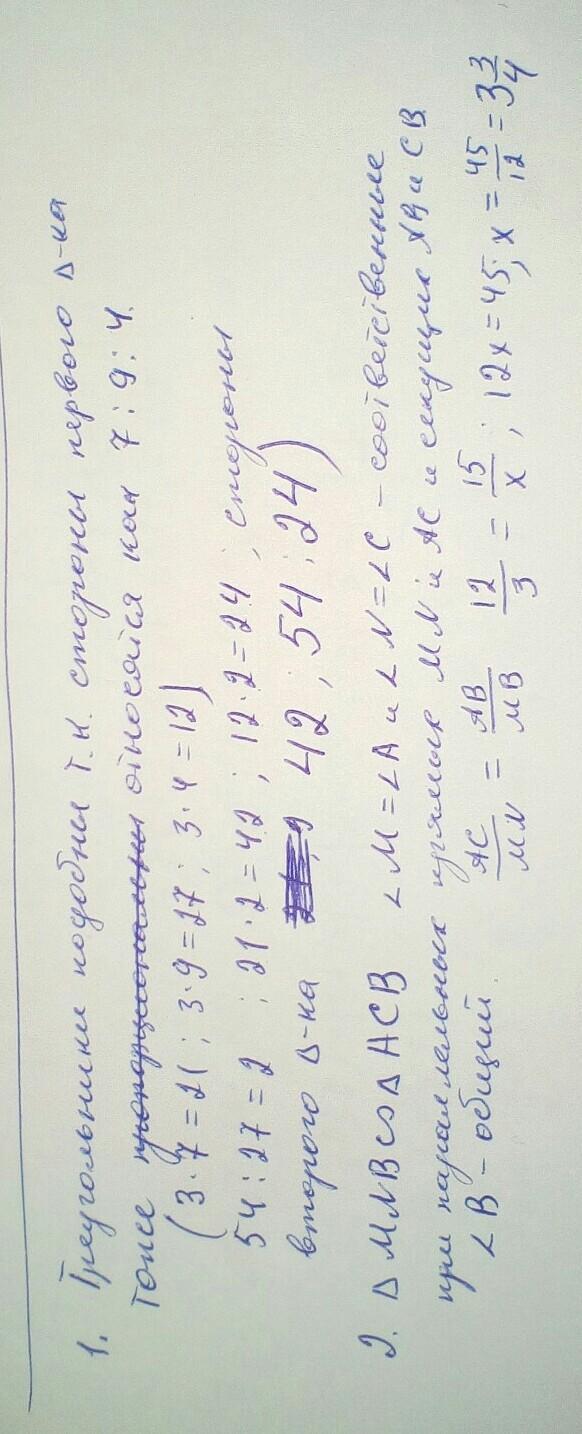 1. Треугольники подобны т.к. стороны первого Δ-ка
тоже пропорциональны относятся как 7 : 9 : 4.
(3·7=21 ; 3·9=27 ; 3·4=12)
54:27=2 ; 21·2=42 ; 12·2=24 ; стороны
второго Δ-ка 42 ; 54 ; 24)
2. Δ MNB ∽ Δ ACB ∠M=∠A и ∠N=∠C – соответственные
при параллельных прямых MN и AC и секущих AB и CB
∠B – общий. AC/MN = AB/MB 12/3 = 15/x ; 12x=45; x = 45/12 = 3 3/4